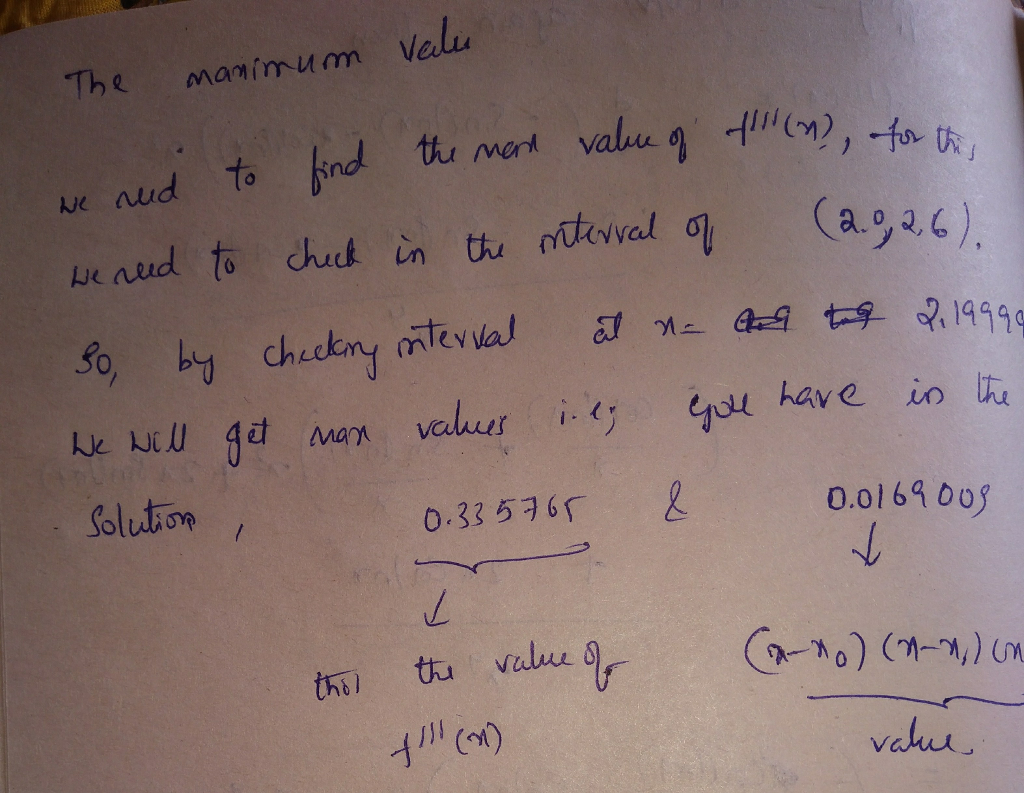 The maximum valu
we need to find the max value of f'''(x), for this
we need to check in the interval of (2.0, 2.6).
So, by checking interval at x = 2.19999
We will get max values i.e; you have in the
Solution, 0.335765 & 0.0169009
↓ ↓
this the value of (x-x₀) (x-x₁) (x
f'''(x) value.